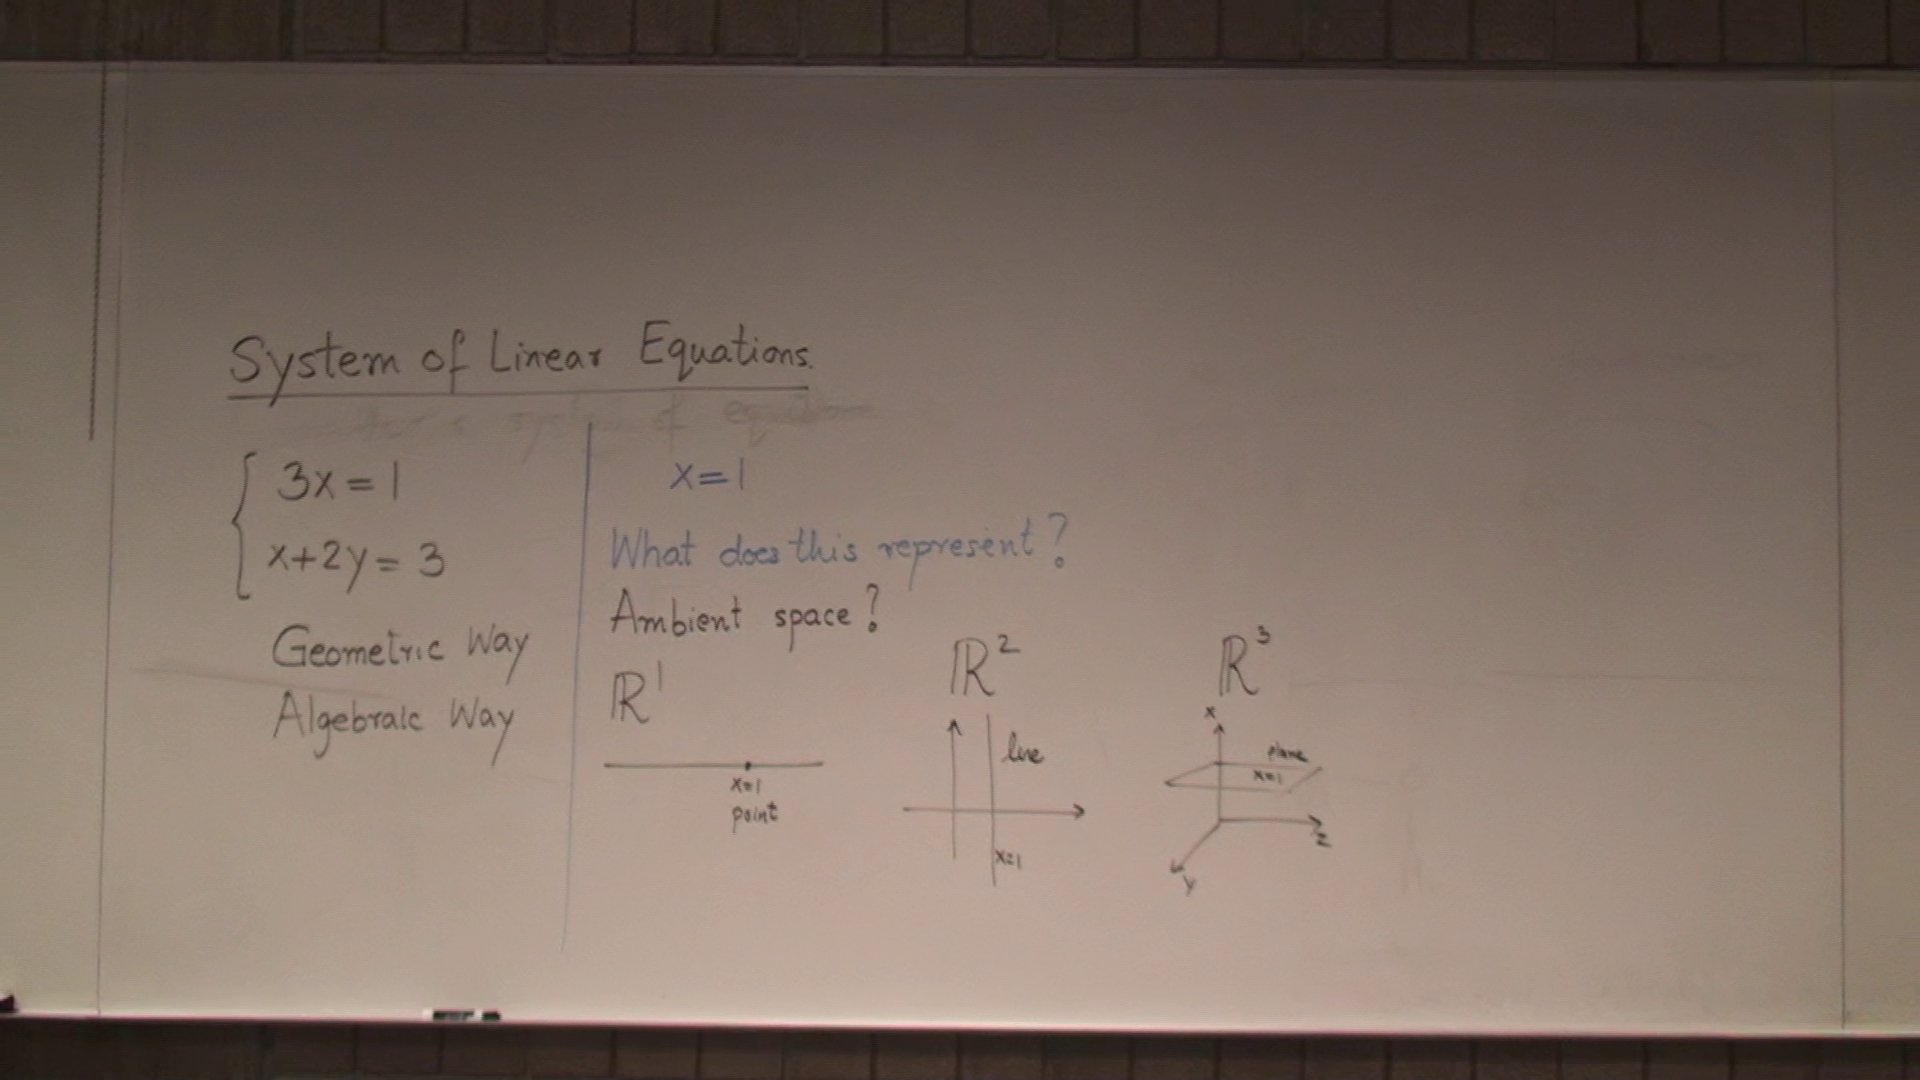 System of Linear Equations.
3x = 1
x+2y = 3
Geometric Way
Algebraic Way
x=1
What does this represent?
Ambient space?
ℝ¹
x=1
point
ℝ²
line
x=1
ℝ³
x
plane
x=1
z
y